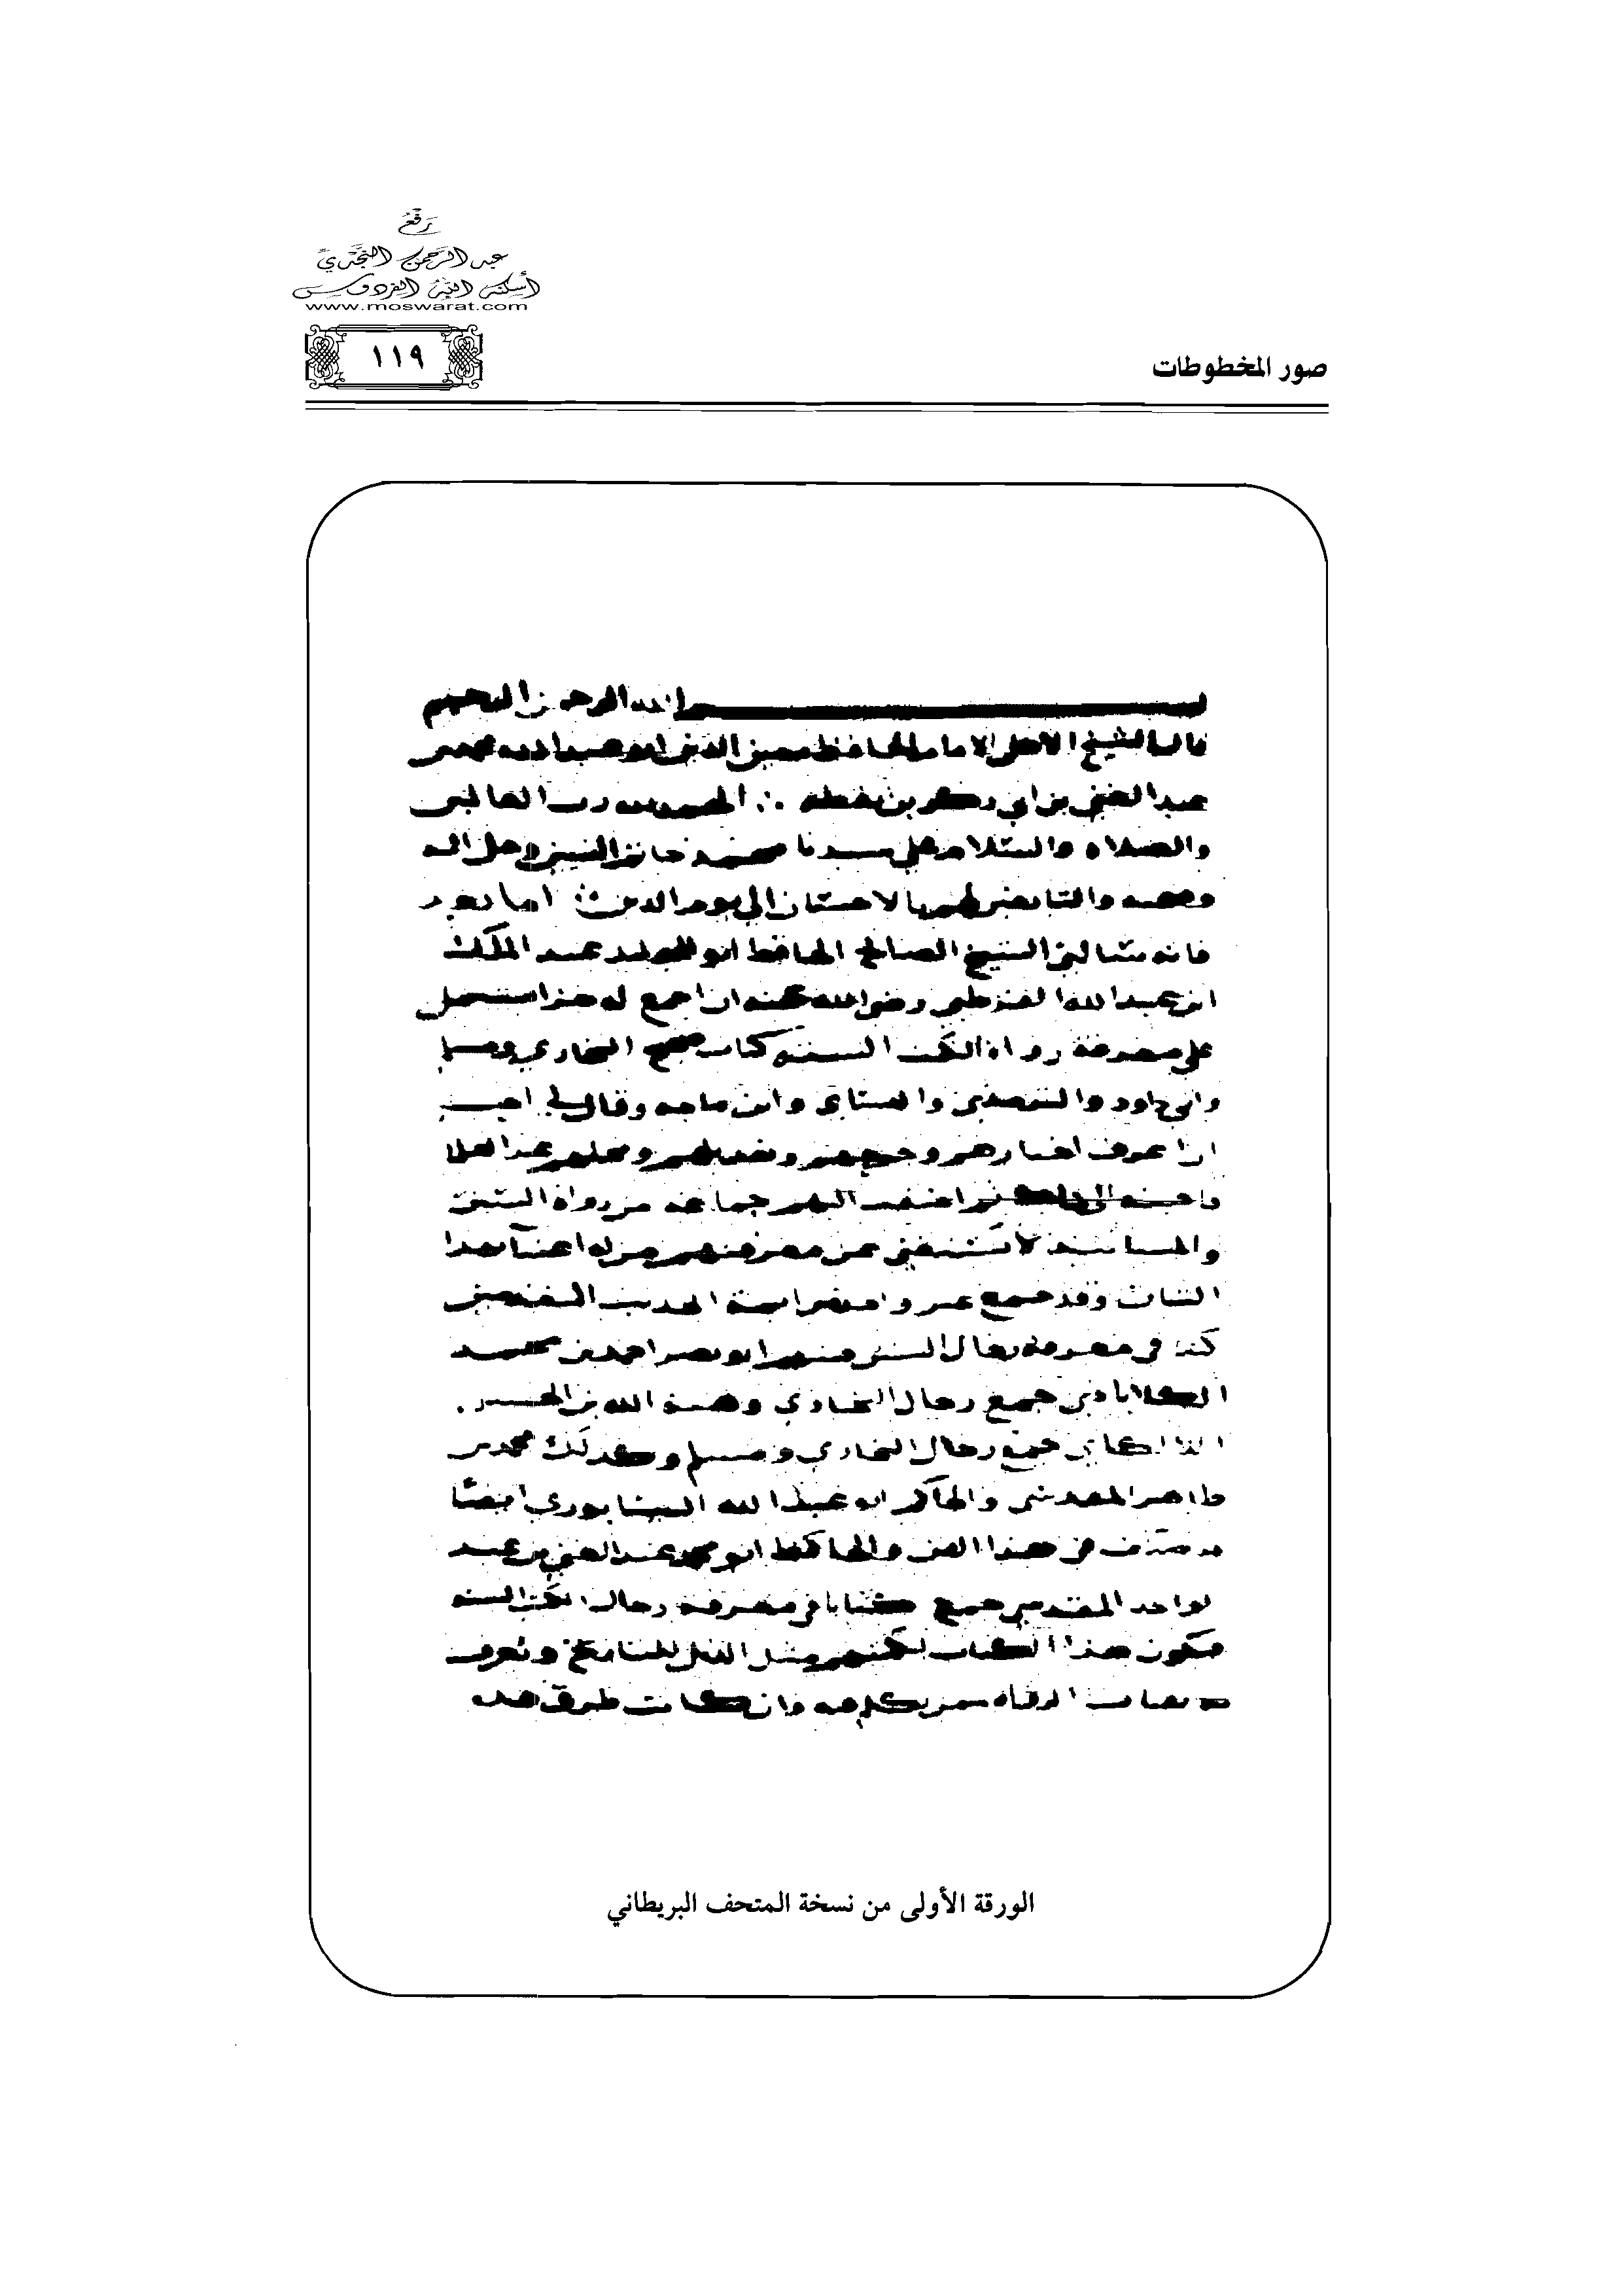 رفع
عبد الرحمن النجدي
أسكنه الله الفردوس
www.moswarat.com
١١٩
صور المخطوطات
بسم الله الرحمن الرحيم
قال الشيخ الاجل الامام الحافظ معين الدين ابو عبد الله محمد بن
عبد الغني بن ابي بكر بن نقطة ∴ الحمد لله رب العالمين
والصلاة والسلام على سيدنا محمد خاتم النبيين وعلى اله
وصحبه والتابعين لهم بالاحسان الى يوم الدين اما بعد
فانه سالني الشيخ الصالح الحافظ ابو الوليد عبد الملك
ابن عبد الله القرطبي رضي الله عنه ان اجمع له جزا يشتمل
على معرفة رواة الكتب الستة كتاب صحيح البخاري ومسلم
وابي داود والترمذي والنسائي وابن ماجه وقال لي احب
ان اعرف اخبارهم و وتعديلهم عند العلما
اضفت اليهم جماعة من رواة السنن
والمسانيد لا يستغني عن معرفتهم من له اعتنا بهذا
الشان وقد جمع غير واحد من ايمة الحديث المتقدمين
كتبا في معرفة رجال السنن منهم ابو نصر احمد بن محمد
الكلاباذي جمع رجال البخاري وهبة الله بن الحسن
اللالكائي جمع رجال البخاري ومسلم وكذلك محمد بن
طاهر المقدسي والحاكم ابو عبد الله النيسابوري ايضا
صنف في هذا الفن والحافظ ابو محمد عبد الغني بن عبد
لواحد المقدسي جمع كتابا في معرفة رجال الكتب الستة
فيكون هذا الكتاب لكتبهم مثل الذيل للتاريخ و
الرواة وان كانت طرق هذه
الورقة الأولى من نسخة المتحف البريطاني